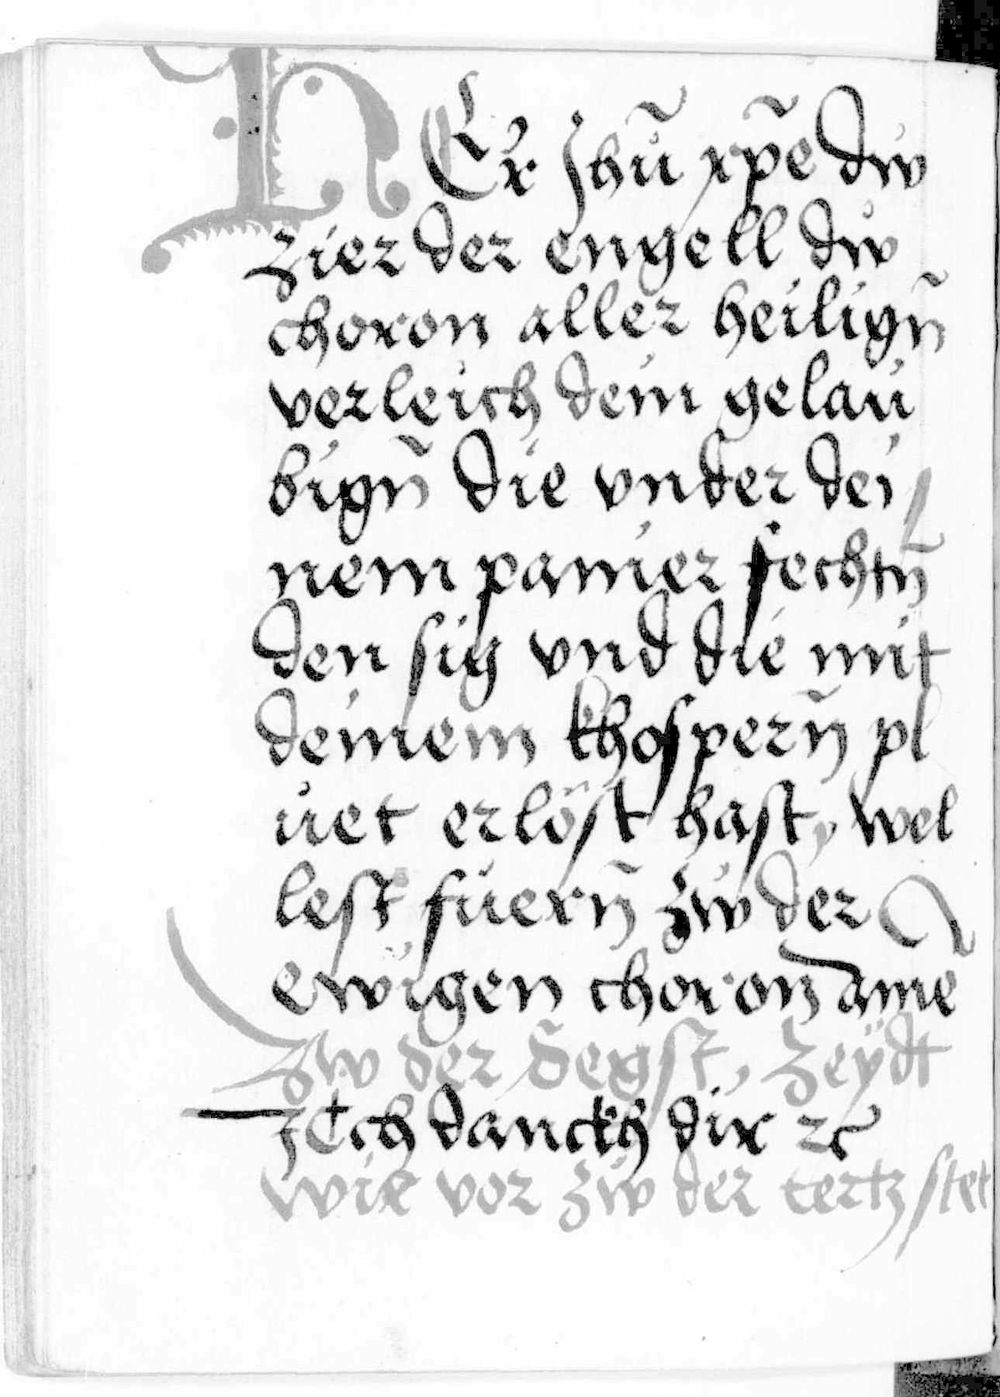 HEr Jhū xpē dw
zier der engell dw
choron aller heiligñ
verleich dein gelau
bigñ die vnder dei
nem panier fechtñ
den sig vnd die mit
deinem khosperñ pl
uet erlöst hast, wel
lest fuerñ zw der
ewigen choron amē
Zw der Segst, Zeÿdt
JCch danckh dir ⁊c̃
wie vor zw der tertz stet